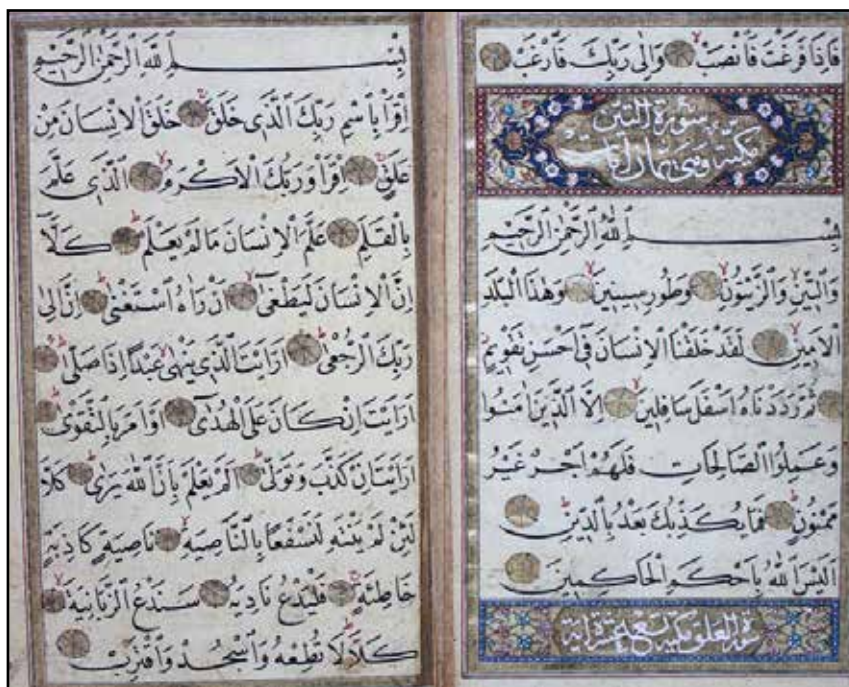 فَاِذَا فَرَغْتَ فَانْصَبْ وَاِلٰى رَبِّكَ فَارْغَبْ
سورة التين
مكية وهي ثمان آيات
بِسْمِ اللّٰهِ الرَّحْمٰنِ الرَّحِيمِ
وَالتِّينِ وَالزَّيْتُونِ وَطُورِ سِينِينَ وَهٰذَا الْبَلَدِ
الْاَمِينِ لَقَدْ خَلَقْنَا الْاِنْسَانَ فِى اَحْسَنِ تَقْوِيمٍ
ثُمَّ رَدَدْنَاهُ اَسْفَلَ سَافِلِينَ اِلَّا الَّذِينَ اٰمَنُوا
وَعَمِلُوا الصَّالِحَاتِ فَلَهُمْ اَجْرٌ غَيْرُ
مَمْنُونٍ فَمَا يُكَذِّبُكَ بَعْدُ بِالدِّينِ
اَلَيْسَ اللّٰهُ بِاَحْكَمِ الْحَاكِمِينَ
سورة العلق مكية تسع عشرة اية
بِسْمِ اللّٰهِ الرَّحْمٰنِ الرَّحِيمِ
اِقْرَأْ بِاسْمِ رَبِّكَ الَّذِى خَلَقَ خَلَقَ الْاِنْسَانَ مِنْ
عَلَقٍ اِقْرَأْ وَرَبُّكَ الْاَكْرَمُ اَلَّذِى عَلَّمَ
بِالْقَلَمِ عَلَّمَ الْاِنْسَانَ مَا لَمْ يَعْلَمْ كَلَّا
اِنَّ الْاِنْسَانَ لَيَطْغٰى اَنْ رَاٰهُ اسْتَغْنٰى اِنَّ اِلٰى
رَبِّكَ الرُّجْعٰى اَرَاَيْتَ الَّذِى يَنْهٰى عَبْدًا اِذَا صَلّٰى
اَرَاَيْتَ اِنْ كَانَ عَلَى الْهُدٰى اَوْ اَمَرَ بِالتَّقْوٰى
اَرَاَيْتَ اِنْ كَذَّبَ وَتَوَلّٰى اَلَمْ يَعْلَمْ بِاَنَّ اللّٰهَ يَرٰى كَلَّا
لَئِنْ لَمْ يَنْتَهِ لَنَسْفَعًا بِالنَّاصِيَةِ نَاصِيَةٍ كَاذِبَةٍ
خَاطِئَةٍ فَلْيَدْعُ نَادِيَهُ سَنَدْعُ الزَّبَانِيَةَ
كَلَّا لَا تُطِعْهُ وَاسْجُدْ وَاقْتَرِبْ